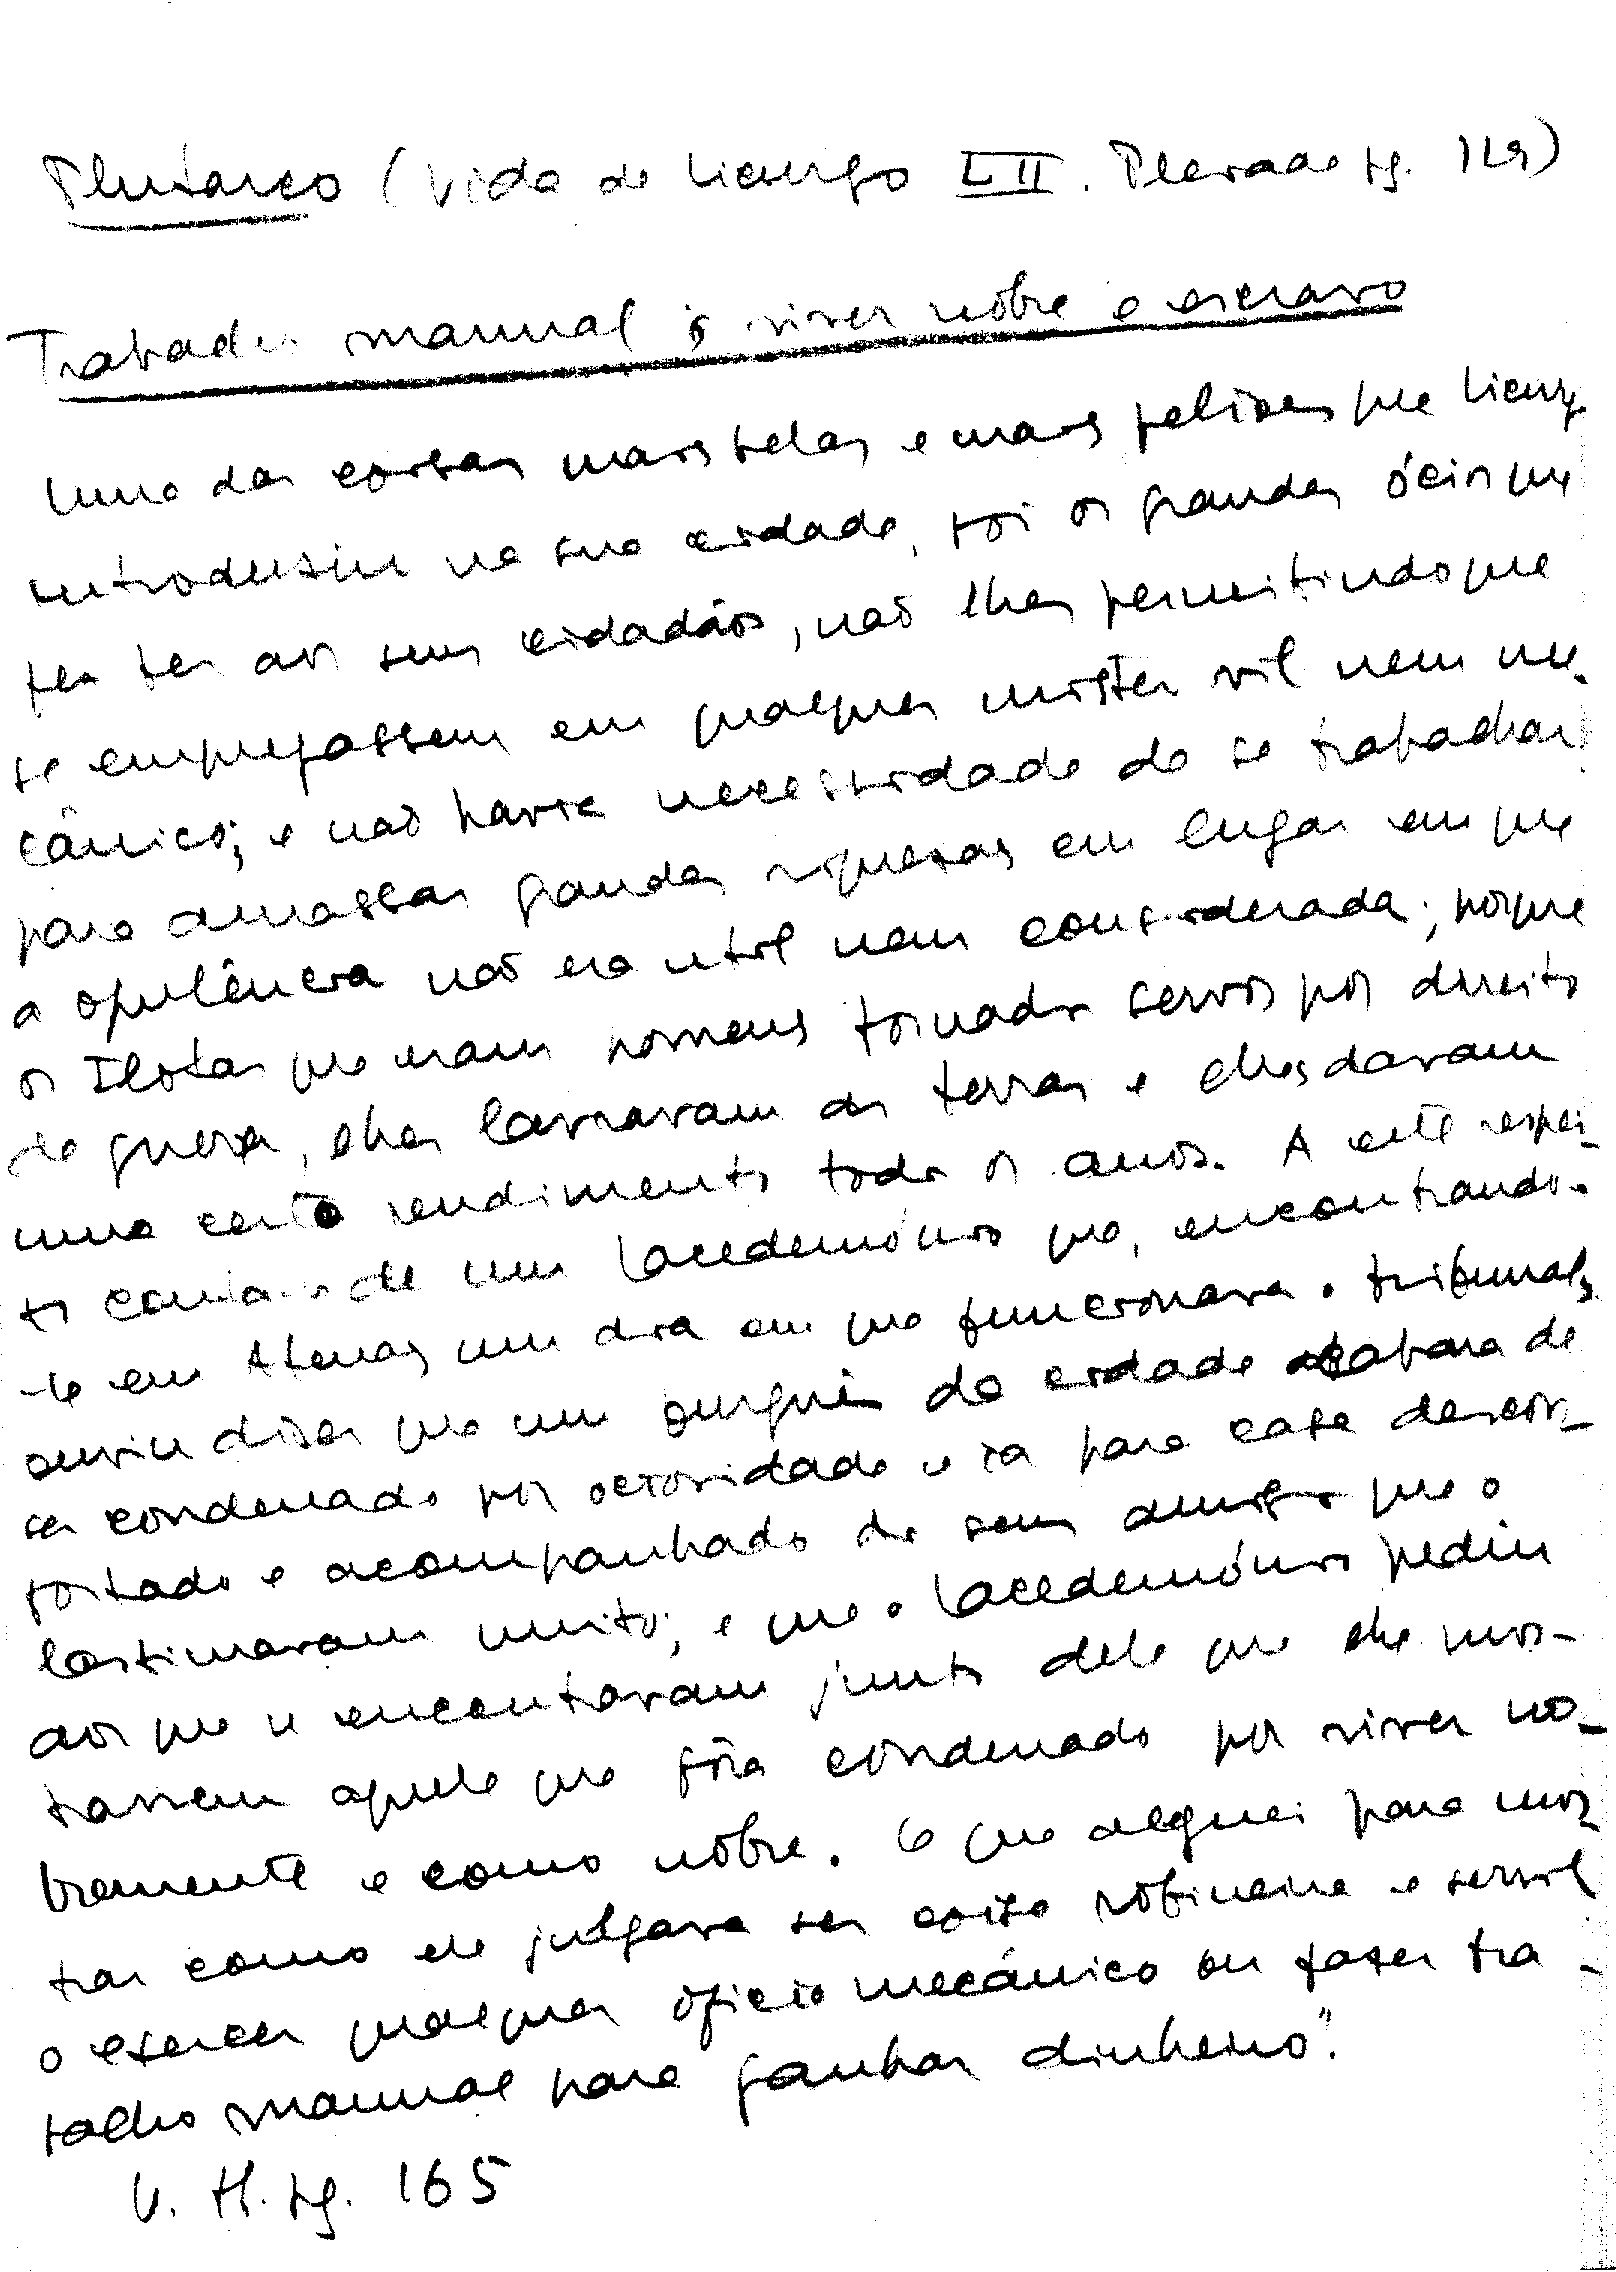 Plutarco (Vida de Licurgo LII. Pleiade pg. 119)
Trabalho manual; viver nobre e escravo
Uma das coisas mais belas e mais felizes que Licurgo
introduziu na sua cidade, foi os grandes ócios que
fez ter aos seus cidadãos, não lhes permitindo que
se empregassem em qualquer mister vil nem me-
cânico; e não havia necessidade de se trabalhar
para amassar grandes riquezas em lugar em que
a opulência não era util nem considerada; porque
os Ilotas que eram homens tornados servos por direito
de guerra, lhes lavravam as terras e lhes davam
um certo rendimento todos os anos. A este respei-
to conta-se de um lacedemónio que, encontrando-
-se em Atenas um dia em que funcionava o tribunal,
ouviu dizer que um burguês da cidade acabava de
ser condenado por ociosidade e ia para casa descon-
fortado e acompanhado de seus amigos que o
lastimavam muito; e que o lacedemónio pediu
aos que se encontravam junto dele que lhe mos-
trassem aquele que fôra condenado por viver no-
bremente e como nobre. O que aleguei para mos-
trar como ele julgava ser coisa rotineira e servil
o exercer qualquer oficio mecânico ou fazer tra-
balho manual para ganhar dinheiro".
V. H. pg. 165